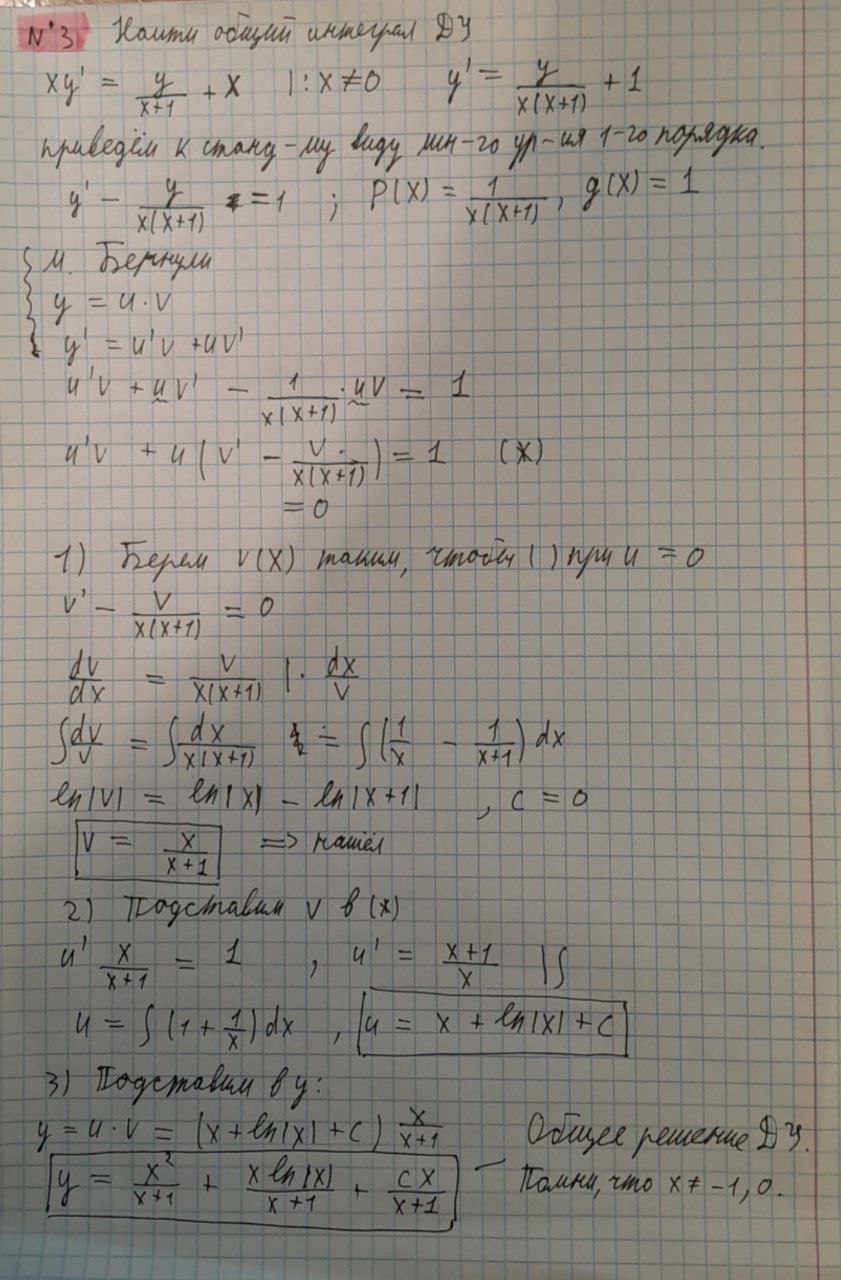 №3 Найти общий интеграл ДУ
xy' = y/(x+1) + x |: x ≠ 0 y' = y/(x(x+1)) + 1
приведём к станд-му виду лин-го ур-ия 1-го порядка.
y' - y/(x(x+1)) = 1 ; P(x) = 1/(x(x+1)), g(x) = 1
М. Бернули
y = u · v
y' = u'v + uv'
u'v + uv' - 1/(x(x+1)) · uv = 1
u'v + u(v' - v/(x(x+1))) = 1 (X)
= 0
1) Берем v(x) таким, чтобы ( ) при u = 0
v' - v/(x(x+1)) = 0
dv/dx = v/(x(x+1)) | · dx/v
∫dv/v = ∫dx/(x(x+1)) = ∫(1/x - 1/(x+1)) dx
ln|v| = ln|x| - ln|x+1| , c = 0
v = x/(x+1) => нашёл
2) Подставим v в (x)
u' x/(x+1) = 1 , u' = (x+1)/x |∫
u = ∫(1 + 1/x) dx , u = x + ln|x| + C
3) Подставим в y:
y = u · v = (x + ln|x| + C) x/(x+1)
Общее решение ДУ.
y = x²/(x+1) + x ln|x|/(x+1) + Cx/(x+1) —
Помни, что x ≠ -1, 0.